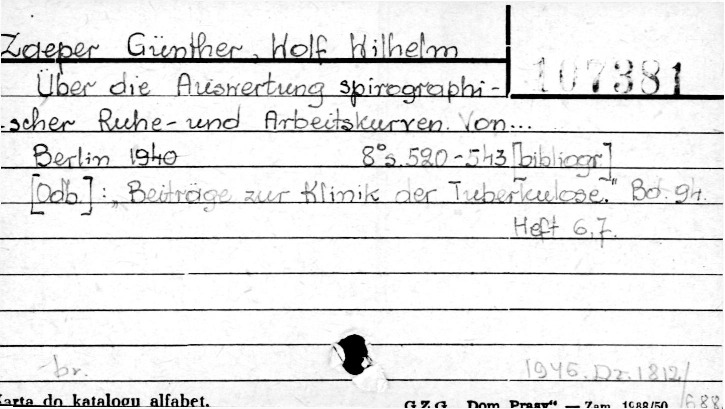 Zaeper Günther, Wolf Wilhelm
107381
Über die Auswertung spirographi-
scher Ruhe- und Arbeitskurven. Von...
Berlin 1940 8° s. 520-543 [bibliogr]
[Odb.]: „Beiträge zur Klinik der Tuberkulose." Bd. 94.
Heft 6,7.
br.
1946. Dz. 1812/
688
Karta do katalogu alfabet.
G.Z.G. „Dom Prasy" — Zam. 1988/50